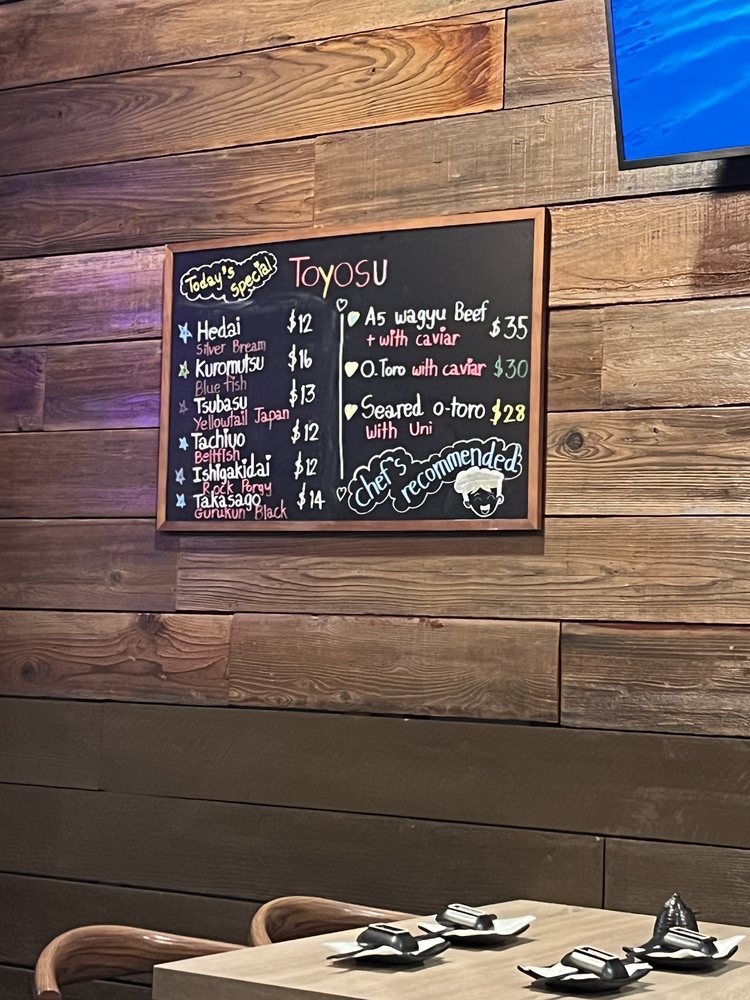 Today's Special
TOYOSU
Hedai $12
Silver Bream
Kuromutsu $16
Blue fish
Tsubasu $13
Yellowtail Japan
Tachiyo $12
Beltfish
Ishigakidai $12
Rock Porgy
Takasago $14
Gurukun Black
A5 wagyu Beef
+ with caviar $35
O.Toro with caviar $30
Seared o-toro $28
with Uni
chef's recommended